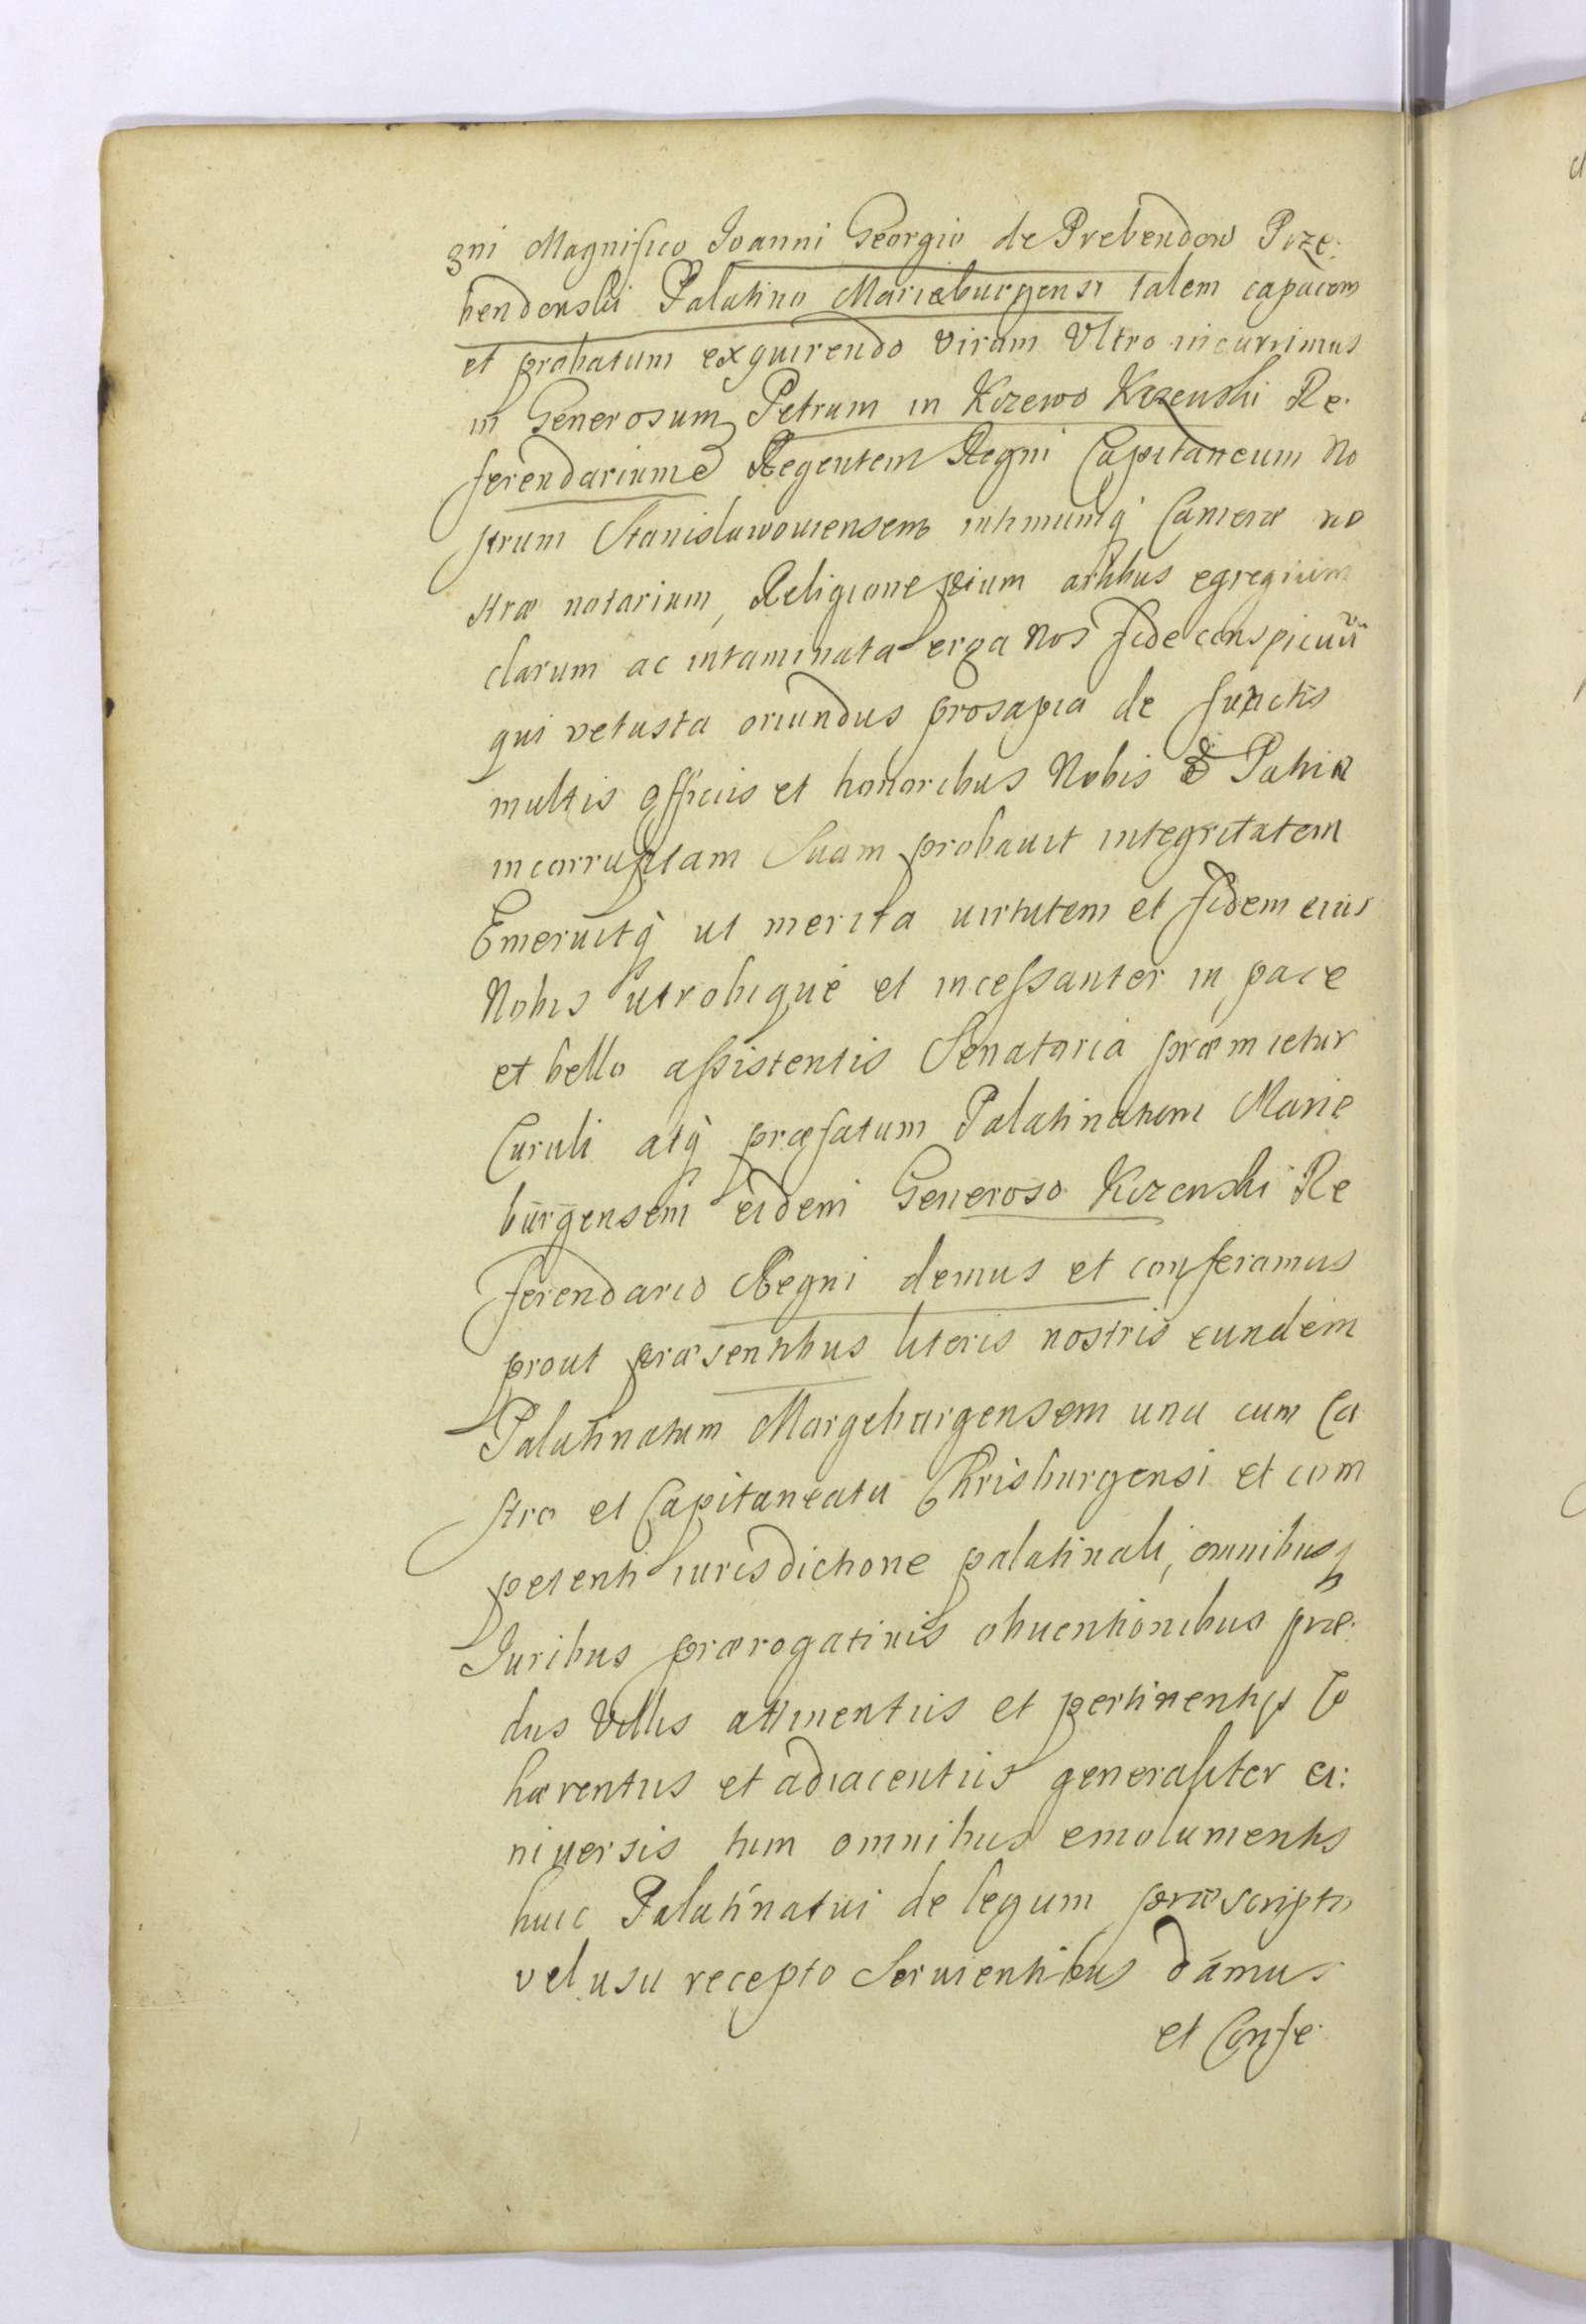 gni Magnifico Joanni Georgio de Prebendow Prze:
bendowski Palatino Marieburgensi talem capacem
et probatum exquirendo virum Ultro incurrimus
in Generosum Petrum in Krzewo Krzewski Re.
ferendarium & Regentem Regni Capitaneum No
strum Stanislawowiensem intimumq Cameræ no
stræ notarium, Religione pium artibus egregium
clarum ac intaminata erga Nos fide conspicuū
qui vetusta oriundus prosapia de functis
multis officiis et honoribus Nobis & Patriæ
incorruptam Suam probauit integritatem
Emeruitq ut merita uirtutem et fidem eius
Nobis utrobique et incessanter in pace
et bello assistentis Senatoria præmietur
Curuli atq præfatum Palatinatum Marie
burgensem eidem Generoso Krzewski Re
ferendario Regni demus et conferamus
prout præsentibus literis nostris eundem
Palatinatum Margeburgensem una cum Ca
stro et Capitaneatu Chrisburgensi et com
petenti iurisdictione palatinali, omnibusq
Juribus prærogatiuis obuentionibus præ.
dus Villis attinentiis et pertinentijs Co
hærentus et adiacentiis generaliter u:
niuersis tum omnibus emolumentis
huic Palatinatui de legum præscripto
vel usu recepto Seruientibus dámus
et Confe.